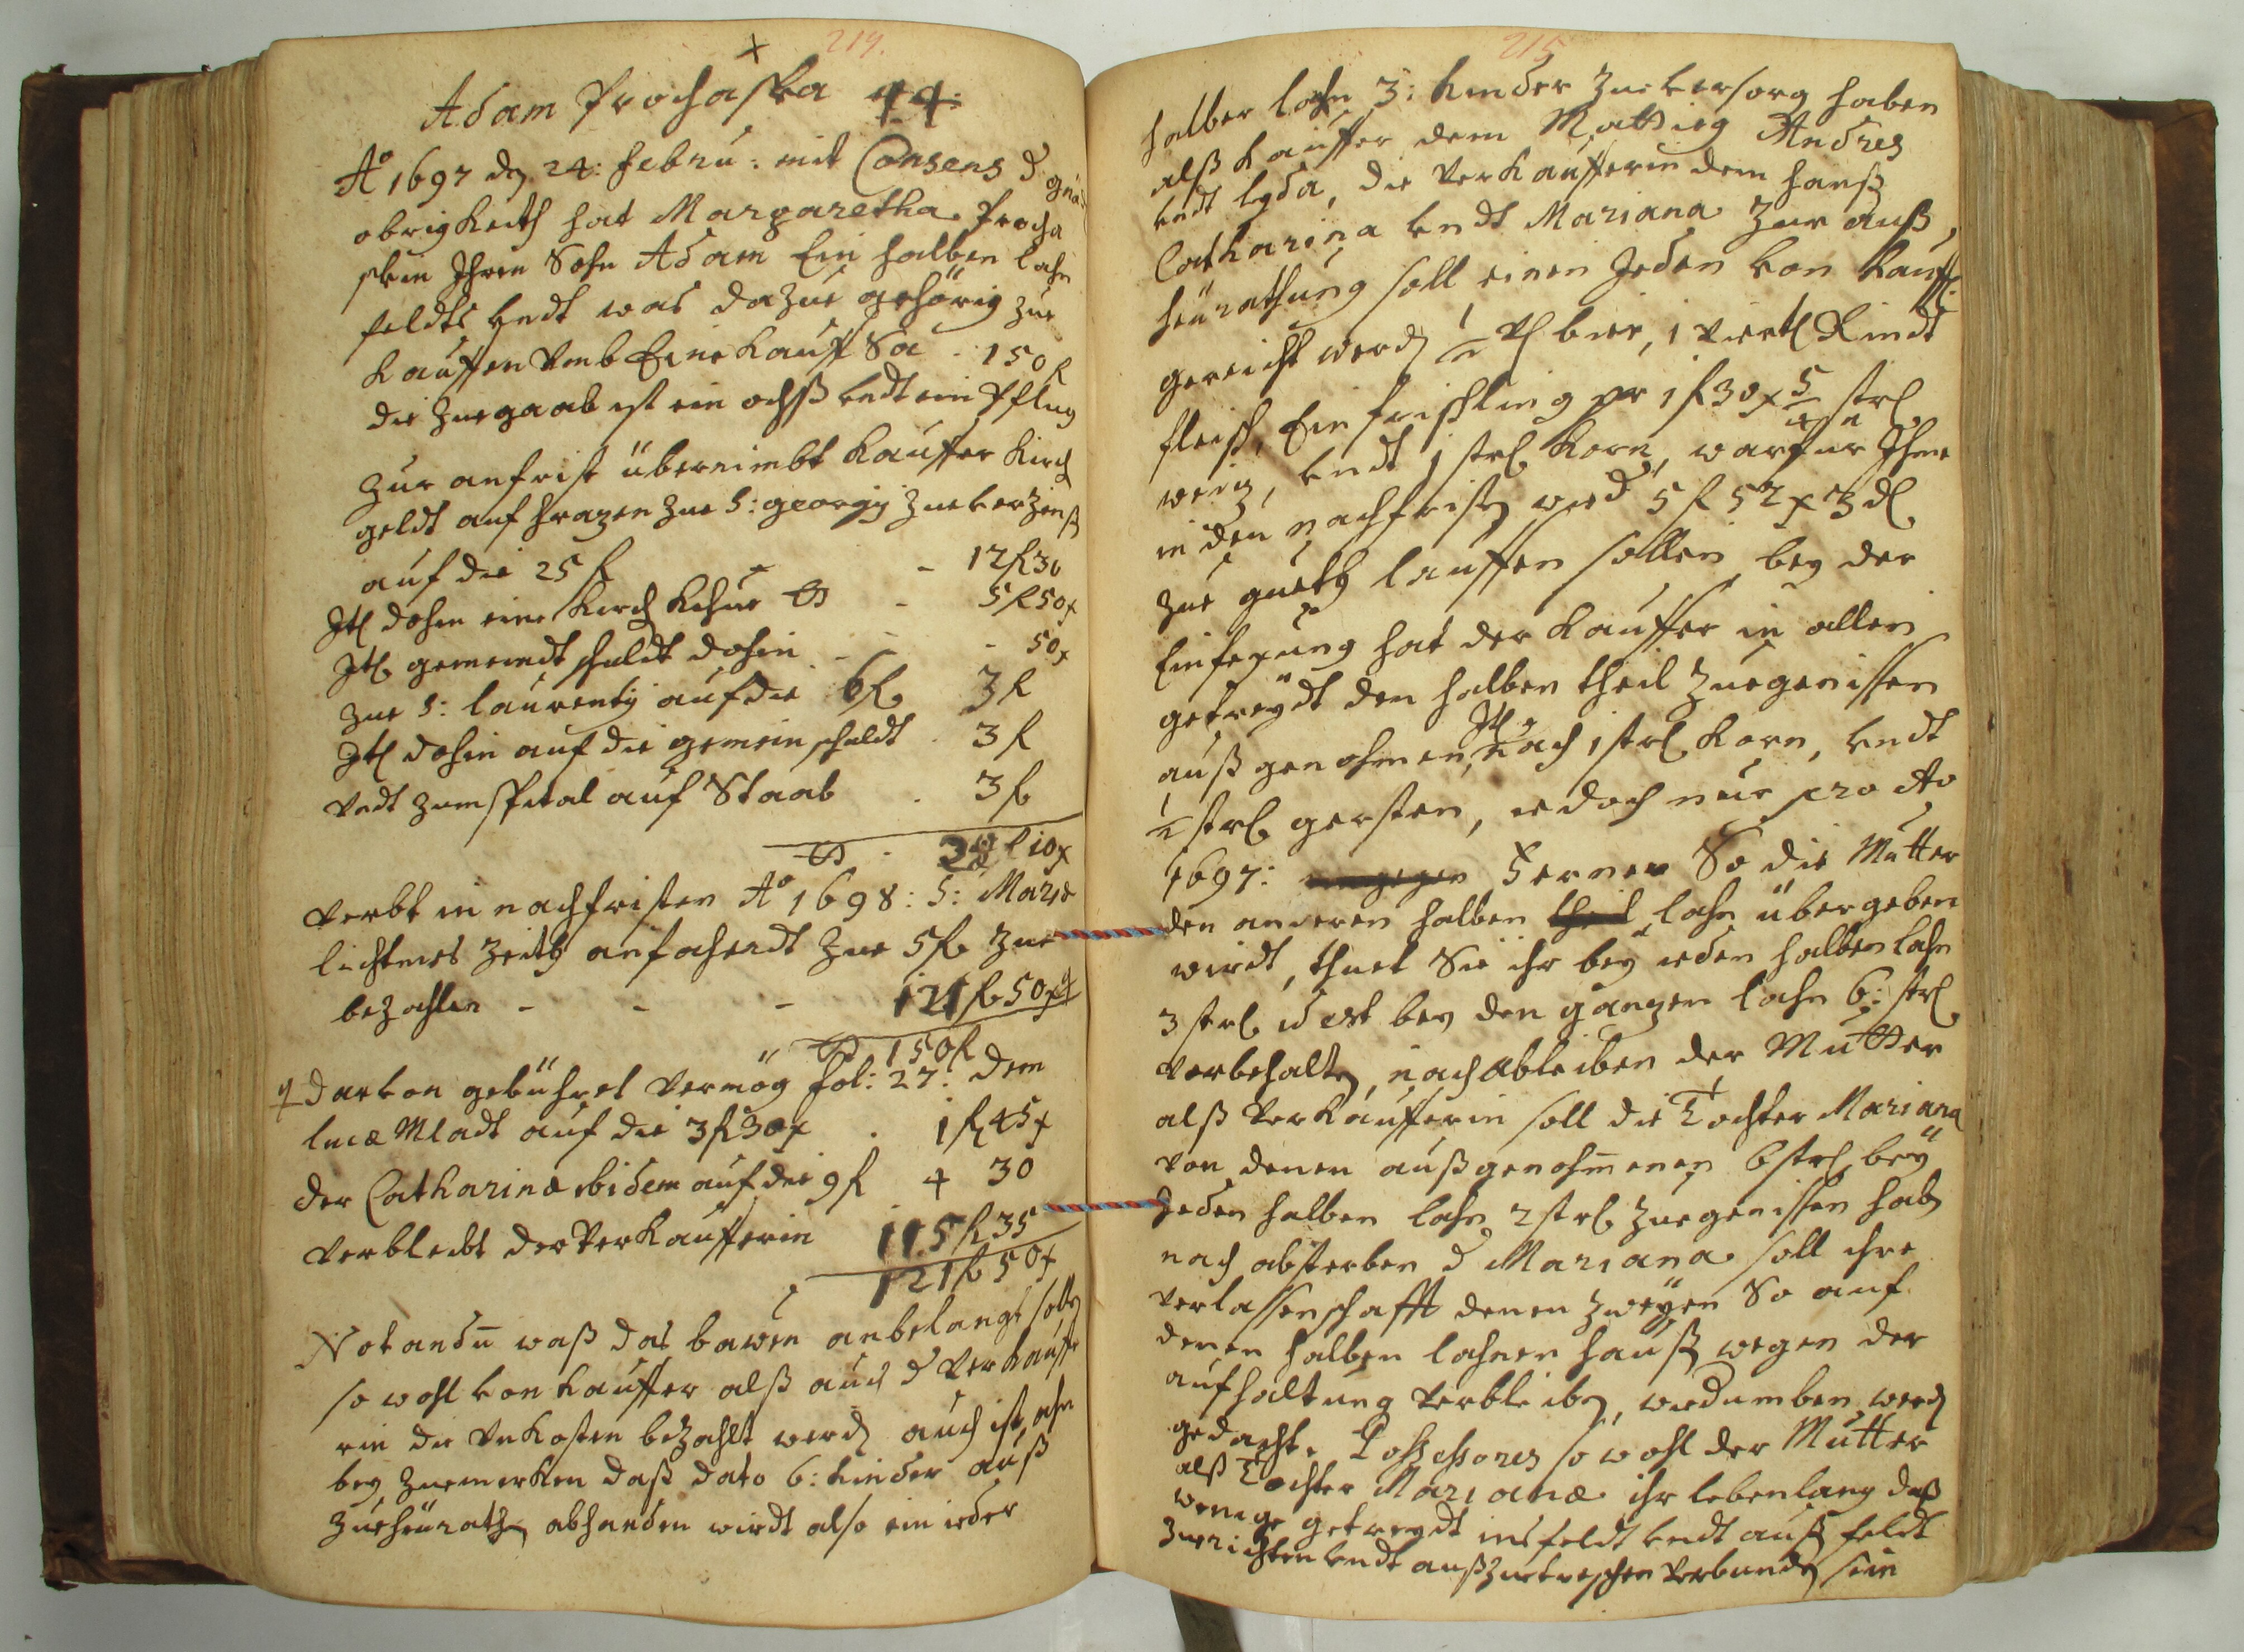 214.
Adam Prochaska 44.
Aº 1697 dē 24: Febru: mit Consens d gnä:
obrigkeith hat Margaretha Procha
skin Ihren Sohn Adam Ein halben lahn
feldts undt was dazue gehörig zue
kauffen umb Eine kauff Sa . 150 f
die zuegaab ist ein ochß undt ein Pflug
zur anfrist übernimbt kauffer kirch
geldt auf Hrazen zue S: georgij zue verzinß
auf die 25 f - - 12 f 30
Itl dahin eine kirch kühe - 5 f 50 x
Itl gemeindt schuldt dahin - - 50 x
zue S: laurentij auf die 6 f 3 f
Itl dahin auf die gemein schuldt . 3 f
undt zum spital auf Staab . 3 f
28 f 10 x
verbt in nachfristen Aº 1698: S: Mariæ
lichtmes Zeith anfahendt zue 5 f zue
bezahlen - - - 121 f 50 x
150 f
darvon gebühret vermög fol: 27: dem
lucæ Mladt auf die 3 f 30 x . 1 f 45 x
der Catharinæ ibidem auf die 9 f 4 30
verbleibt der verkaufferin 115 f 35
121 f 50 x
Notandū waß das bawen anbelangt solln
so wohl von kauffer alß auch d verkauffe
rin die unkosten bezahlt werdn auch ist ahn
bey zuemerken daß dato 6: kinder auß
zueheürathn vorhanden wirdt also ein ieder
215
halber lahn 3: kinder zue versorg haben
alß kauffer dem Mattieg Andres
undt lyda, die verkaufferin dem hanß
Catharina undt Mariana zur auß
heürathung soll einen Jeden von kauff:
gereicht werdn 1/2 vl bier, 1 viertl Rindt
fleisch, Ein frischling pr 1 f 30 x 5/4 strl
weiz, undt 1 strl korn, warfur Ihme
in den nachfristn wird 5 f 52 x 3 dl
zue gueth lauffen sollen, bey der
Einsezung hat der kauffer in allen
getreydt den halben theil zuegenissen
auß genohmen, Itl nach 1 strl korn, undt
1/2 strl gersten, iedoch nur pro Ao
1697: Ferner So die Mutter
den anderen halben theil lahn übergeben
wirdt, thuet Sie ihr bey ieden halben lahn
3 strl id est bey den ganzen lahn 6: strl
vorbehaltn, nach ableiben der Mutter
alß verkaufferin soll die Tochter Mariana
von denen außgenohmenen 6 strl bey
Jeden halben lahn 2 strl zuegenissen habn
nach absterben d Mariana soll ihre
verlassenschafft denen zweyen So auf
denen halben lahnen hauß wegen der
aufhaltung verbleibn, wirdumben werdn
gedachte Possessores so wohl der Mutter
alß Tochter Marianæ ihr lebenlang daß
wenige getreydt ins feldt undt auß feldt
zuerichten undt außzuetreschen verbundn sein